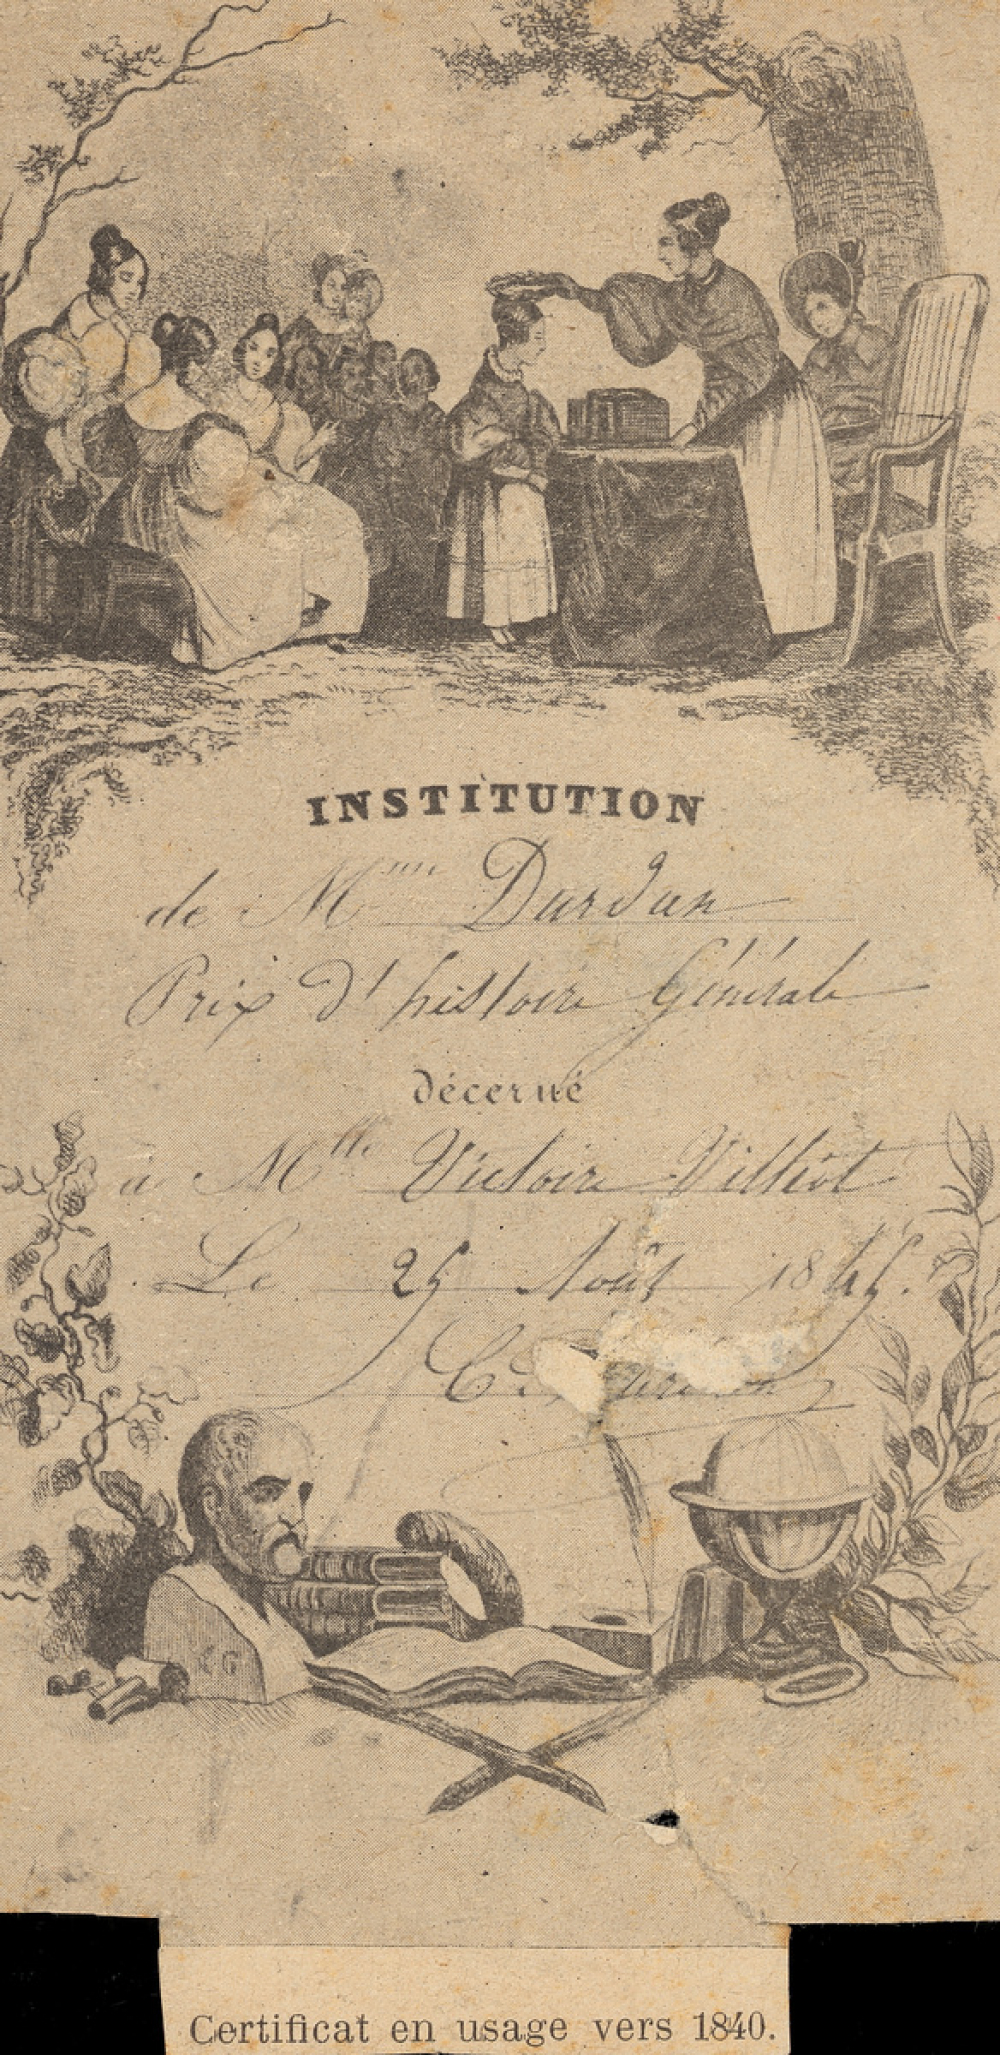 INSTITUTION
de Mme Durdan
Prix d'histoire Générale
décerné
à Mlle Victoire Villiot
Le 25 Août 1845.
Certificat en usage vers 1840.